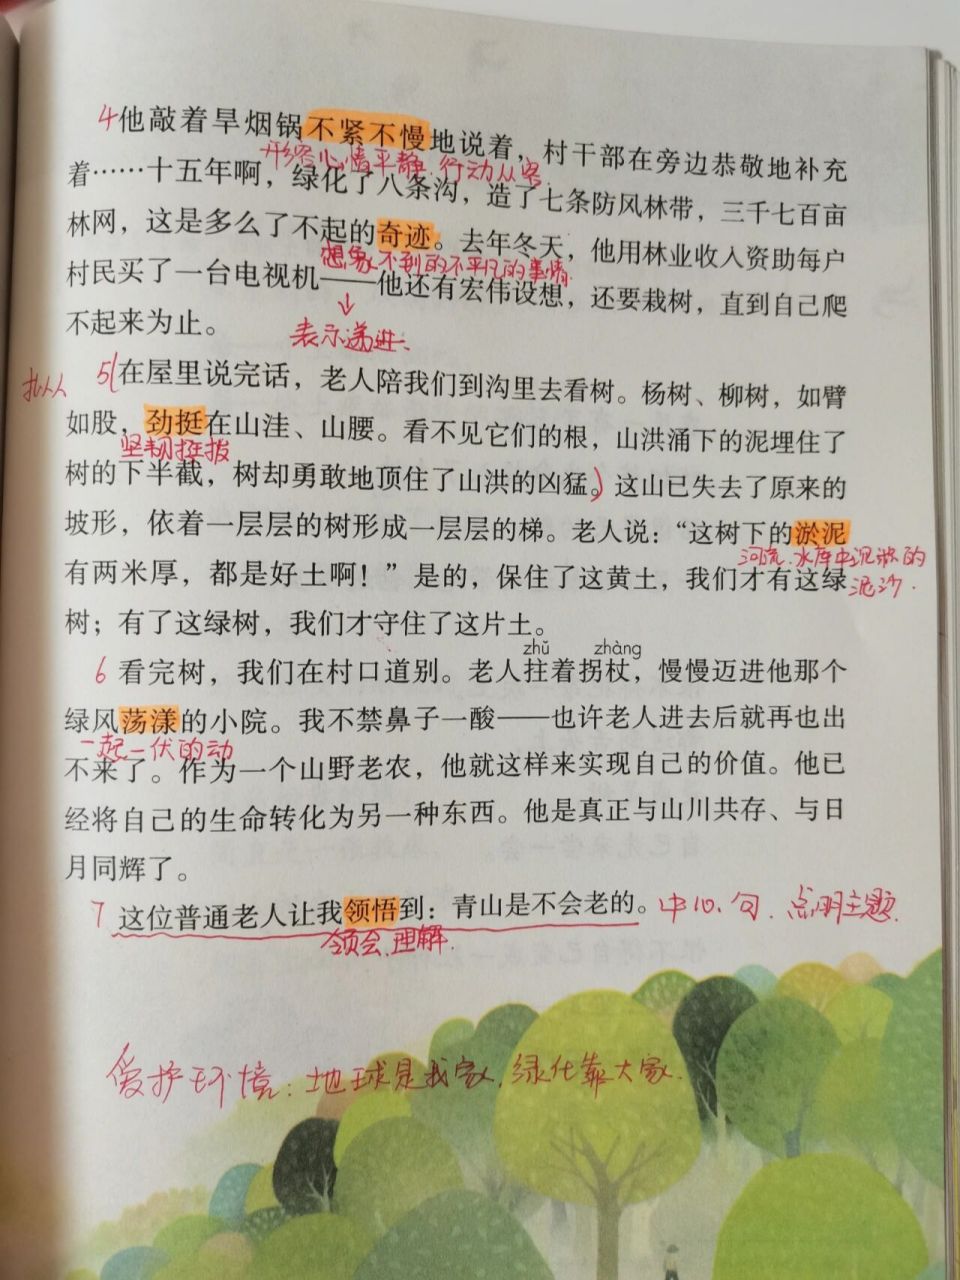 4他敲着旱烟锅不紧不慢地说着，村干部在旁边恭敬地补充
形容心情平静.行动从容.
着……十五年啊，绿化了八条沟，造了七条防风林带，三千七百亩
林网，这是多么了不起的奇迹。去年冬天，他用林业收入资助每户
想象不到的不平凡的事情.
村民买了一台电视机——他还有宏伟设想，还要栽树，直到自己爬
不起来为止。
↓
表示递进.
拟人
5(在屋里说完话，老人陪我们到沟里去看树。杨树、柳树，如臂
如股，劲挺在山洼、山腰。看不见它们的根，山洪涌下的泥埋住了
坚韧挺拔
树的下半截，树却勇敢地顶住了山洪的凶猛。)这山已失去了原来的
坡形，依着一层层的树形成一层层的梯。老人说：“这树下的淤泥
河流.水库中沉淀的
泥沙.
有两米厚，都是好土啊！”是的，保住了这黄土，我们才有这绿
树；有了这绿树，我们才守住了这片土。
zhǔ zhàng
6 看完树，我们在村口道别。老人拄着拐杖，慢慢迈进他那个
绿风荡漾的小院。我不禁鼻子一酸——也许老人进去后就再也出
一起一伏的动
不来了。作为一个山野老农，他就这样来实现自己的价值。他已
经将自己的生命转化为另一种东西。他是真正与山川共存、与日
月同辉了。
7 这位普通老人让我领悟到：青山是不会老的。中心句.点明主题.
领会.理解.
爱护环境:地球是我家,绿化靠大家.